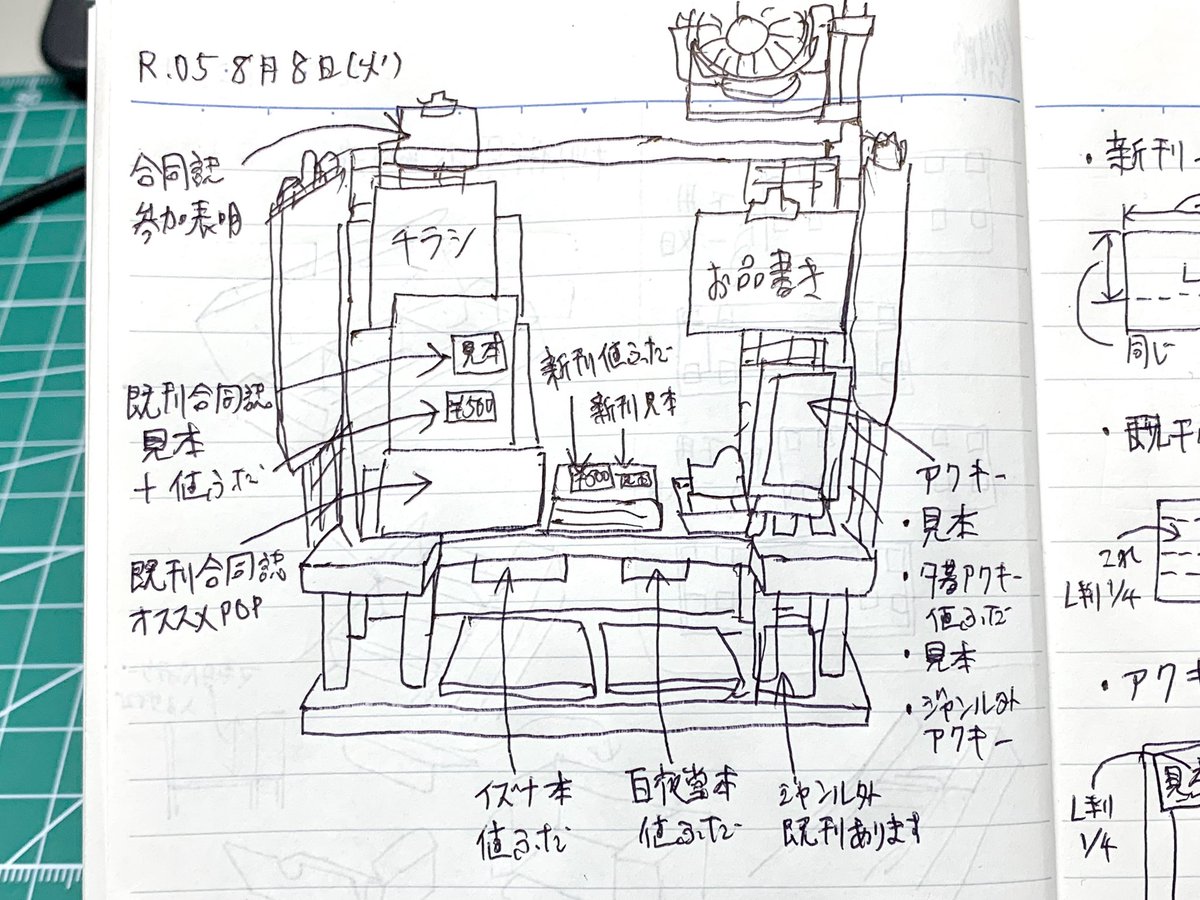 R.05.8月8日(火)
合同誌
参加表明
チラシ
お品書き
見本
¥500
新刊値ふだ
新刊見本
¥500
見本
既刊合同誌
見本
+値ふだ
既刊合同誌
オススメPOP
アクキー
・見本
・夕暮アクキー
値ふだ
・見本
・ジャンル外
アクキー
イズナ本
値ふだ
白夜堂本
値ふだ
ジャンル外
既刊あります
・新刊
同じ
・既刊
2つ折
L判1/4
・アクキ
見本
L判
1/4